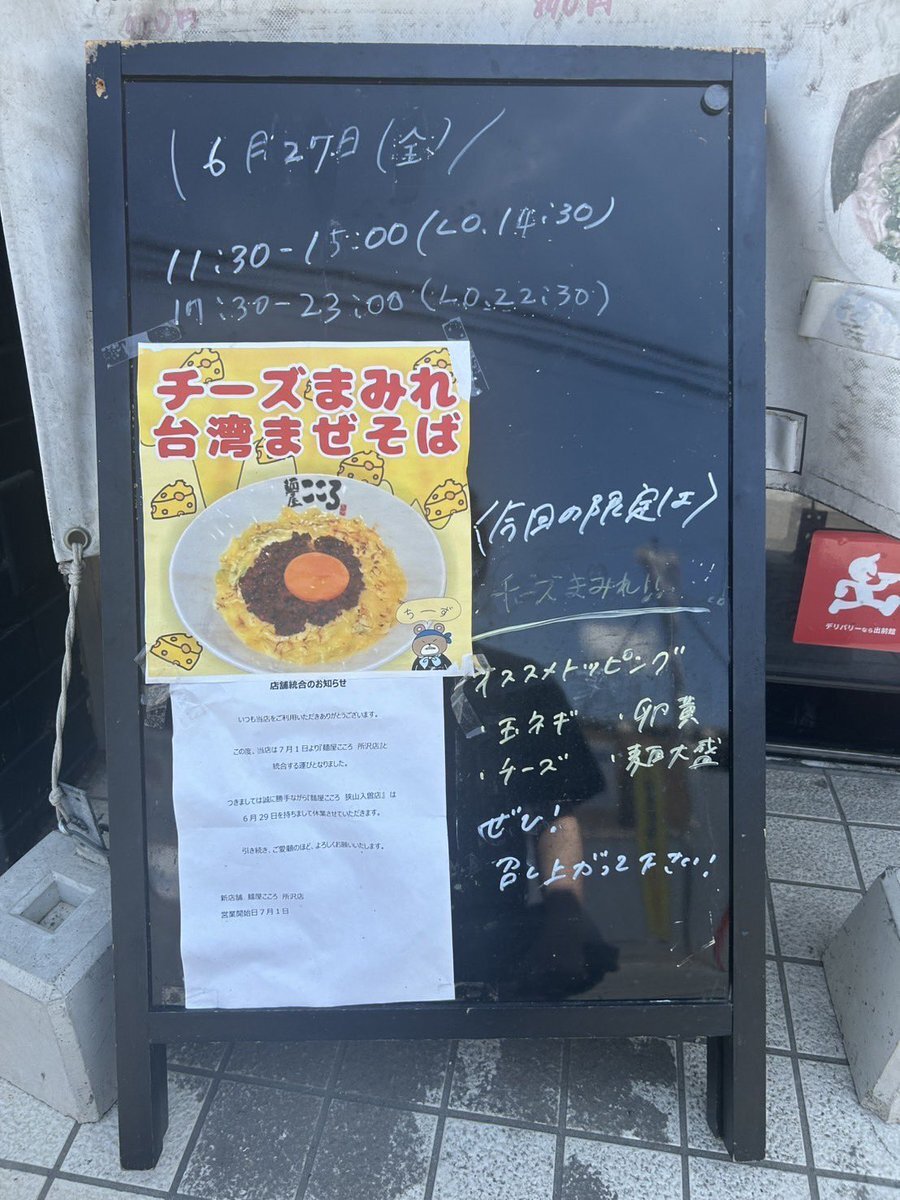 890円
\ 6月27日(金) /
11:30-15:00(LO.14:30)
17:30-23:00(LO.22:30)
チーズまみれ
台湾まぜそば
麺屋こころ
ちーず
〈今回の限定は〉
チーズまみれ!!
オススメトッピング
・玉ネギ ・卵黄
・チーズ ・麺大盛
ぜひ!
召し上がって下さい!
店舗統合のお知らせ
いつも当店をご利用いただきありがとうございます。
この度、当店は7月1日より『麺屋こころ 所沢店』と
統合する運びとなりました。
つきましては誠に勝手ながら『麺屋こころ 狭山入曽店』 は
6月29日を持ちまして休業させていただきます。
引き続き、ご愛顧のほど、よろしくお願いいたします。
新店舗 麺屋こころ 所沢店
営業開始日7月1日
デリバリーなら出前館